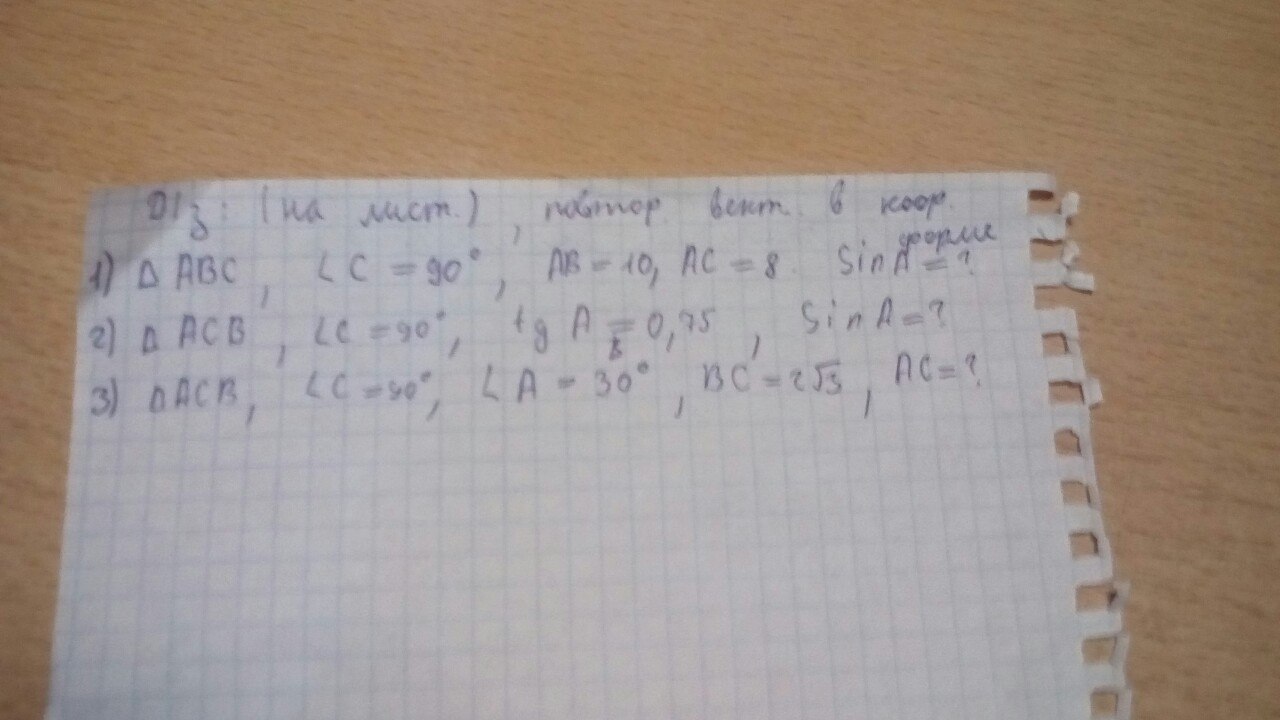 D/з: (на лист.), повтор. вект. в коор. форме
1) △ ABC, ∠C = 90°, AB = 10, AC = 8. Sin A = ?
2) △ ACB, ∠C = 90°, tg A = 0,75, Sin A = ?
в
3) △ ACB, ∠C = 90°, ∠A = 30°, BC = 2√3, AC = ?